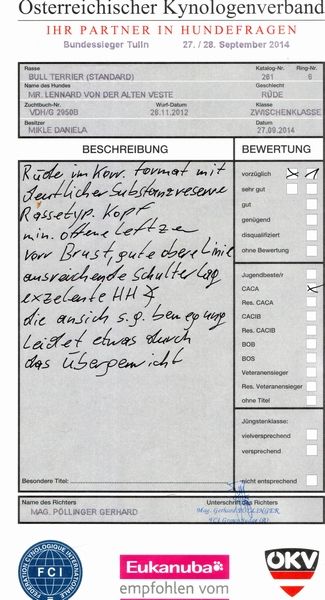 Österreichischer Kynologenverband
IHR PARTNER IN HUNDEFRAGEN
Bundessieger Tulln 27. / 28. September 2014
Rasse Katalog-Nr. Ring-Nr.
BULL TERRIER (STANDARD) 261 6
Name des Hundes Geschlecht
MR. LENNARD VON DER ALTEN VESTE RÜDE
Zuchtbuch-Nr. Wurf-Datum Klasse
VDH/G 2950B 26.11.2012 ZWISCHENKLASSE
Besitzer Datum
MIKLE DANIELA 27.09.2014
BESCHREIBUNG BEWERTUNG
Rüde im Korr. format mit
deutlicher Substanzreserve
Rassetyp. Kopf
min. offene Leftzen
vorr Brust, gute obere Linie
ausreichende Schulterlag
exzelente HH
die ansich s.g. bewegung
leidet etwas durch
das Übergewicht
vorzüglich X 1
sehr gut
gut
genügend
disqualifiziert
ohne Bewertung
Jugendbeste/r
CACA X
Res. CACA
CACIB
Res. CACIB
BOB
BOS
Veteranensieger
Res. Veteranensieger
ohne Titel
Jüngstenklasse:
vielversprechend
versprechend
nicht entsprechend
Besondere Titel:
Name des Richters Unterschrift des Richters
MAG. PÖLLINGER GERHARD Mag. Gerhard PÖLLINGER
FEDERATION CYNOLOGIQUE INTERNATIONALE
FCI
Eukanuba
empfohlen vom
ÖKV